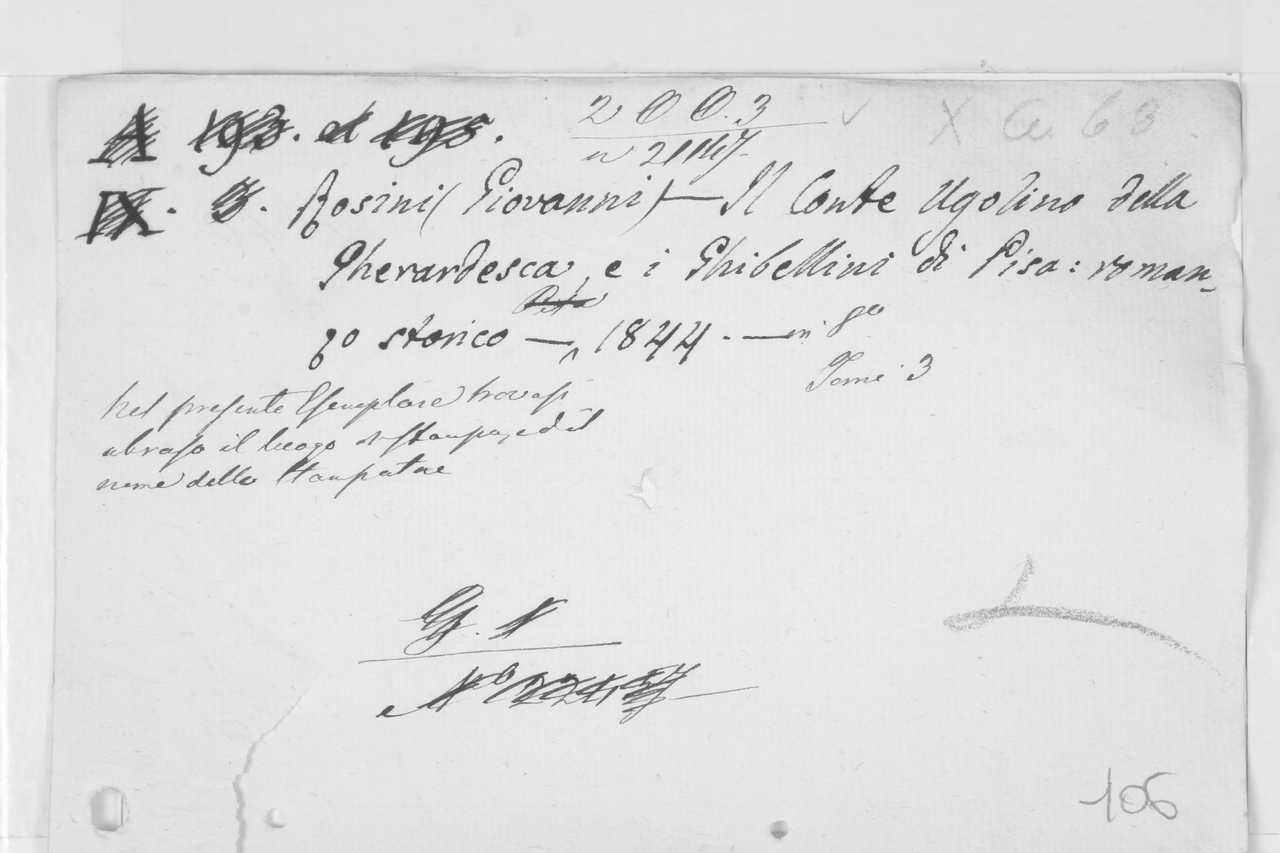 200.3
X Ce. 63
A 193. et 195.
IX. 3. Rosini (Giovanni) — Il Conte Ugolino della
Gherardesca, e i Ghibellini di Pisa: roman-
Pisa
zo storico — 1844 — in 8º
Tomi 3
Nel presente Esemplare trovasi
abraso il luogo di stampa, ed il
nome dello Stampatore
106